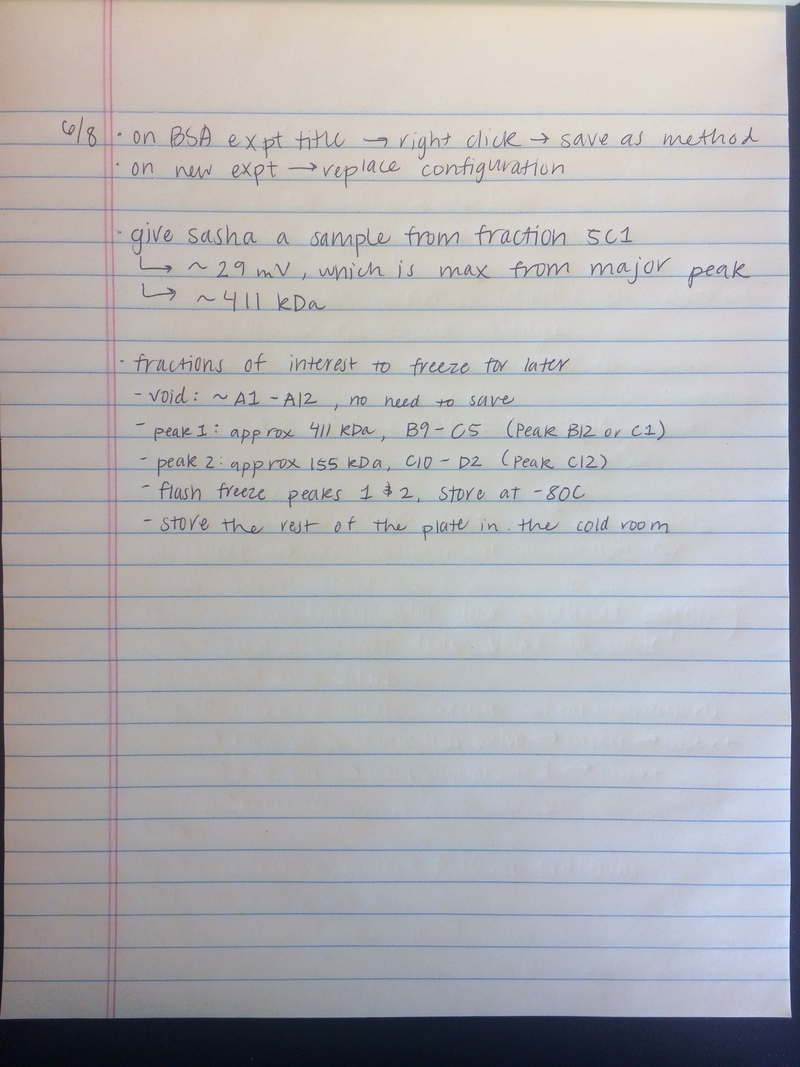 6/8 · on BSA expt title → right click → save as method
· on new expt → replace configuration
· give sasha a sample from fraction 5C1
↳ ~29 mV, which is max from major peak
↳ ~411 kDa
· fractions of interest to freeze for later
- void: ~A1-A12, no need to save
- peak 1: approx 411 kDa, B9-C5 (Peak B12 or C1)
- peak 2: approx 155 kDa, C10-D2 (Peak C12)
- flash freeze peaks 1 & 2, store at -80C
- store the rest of the plate in the cold room